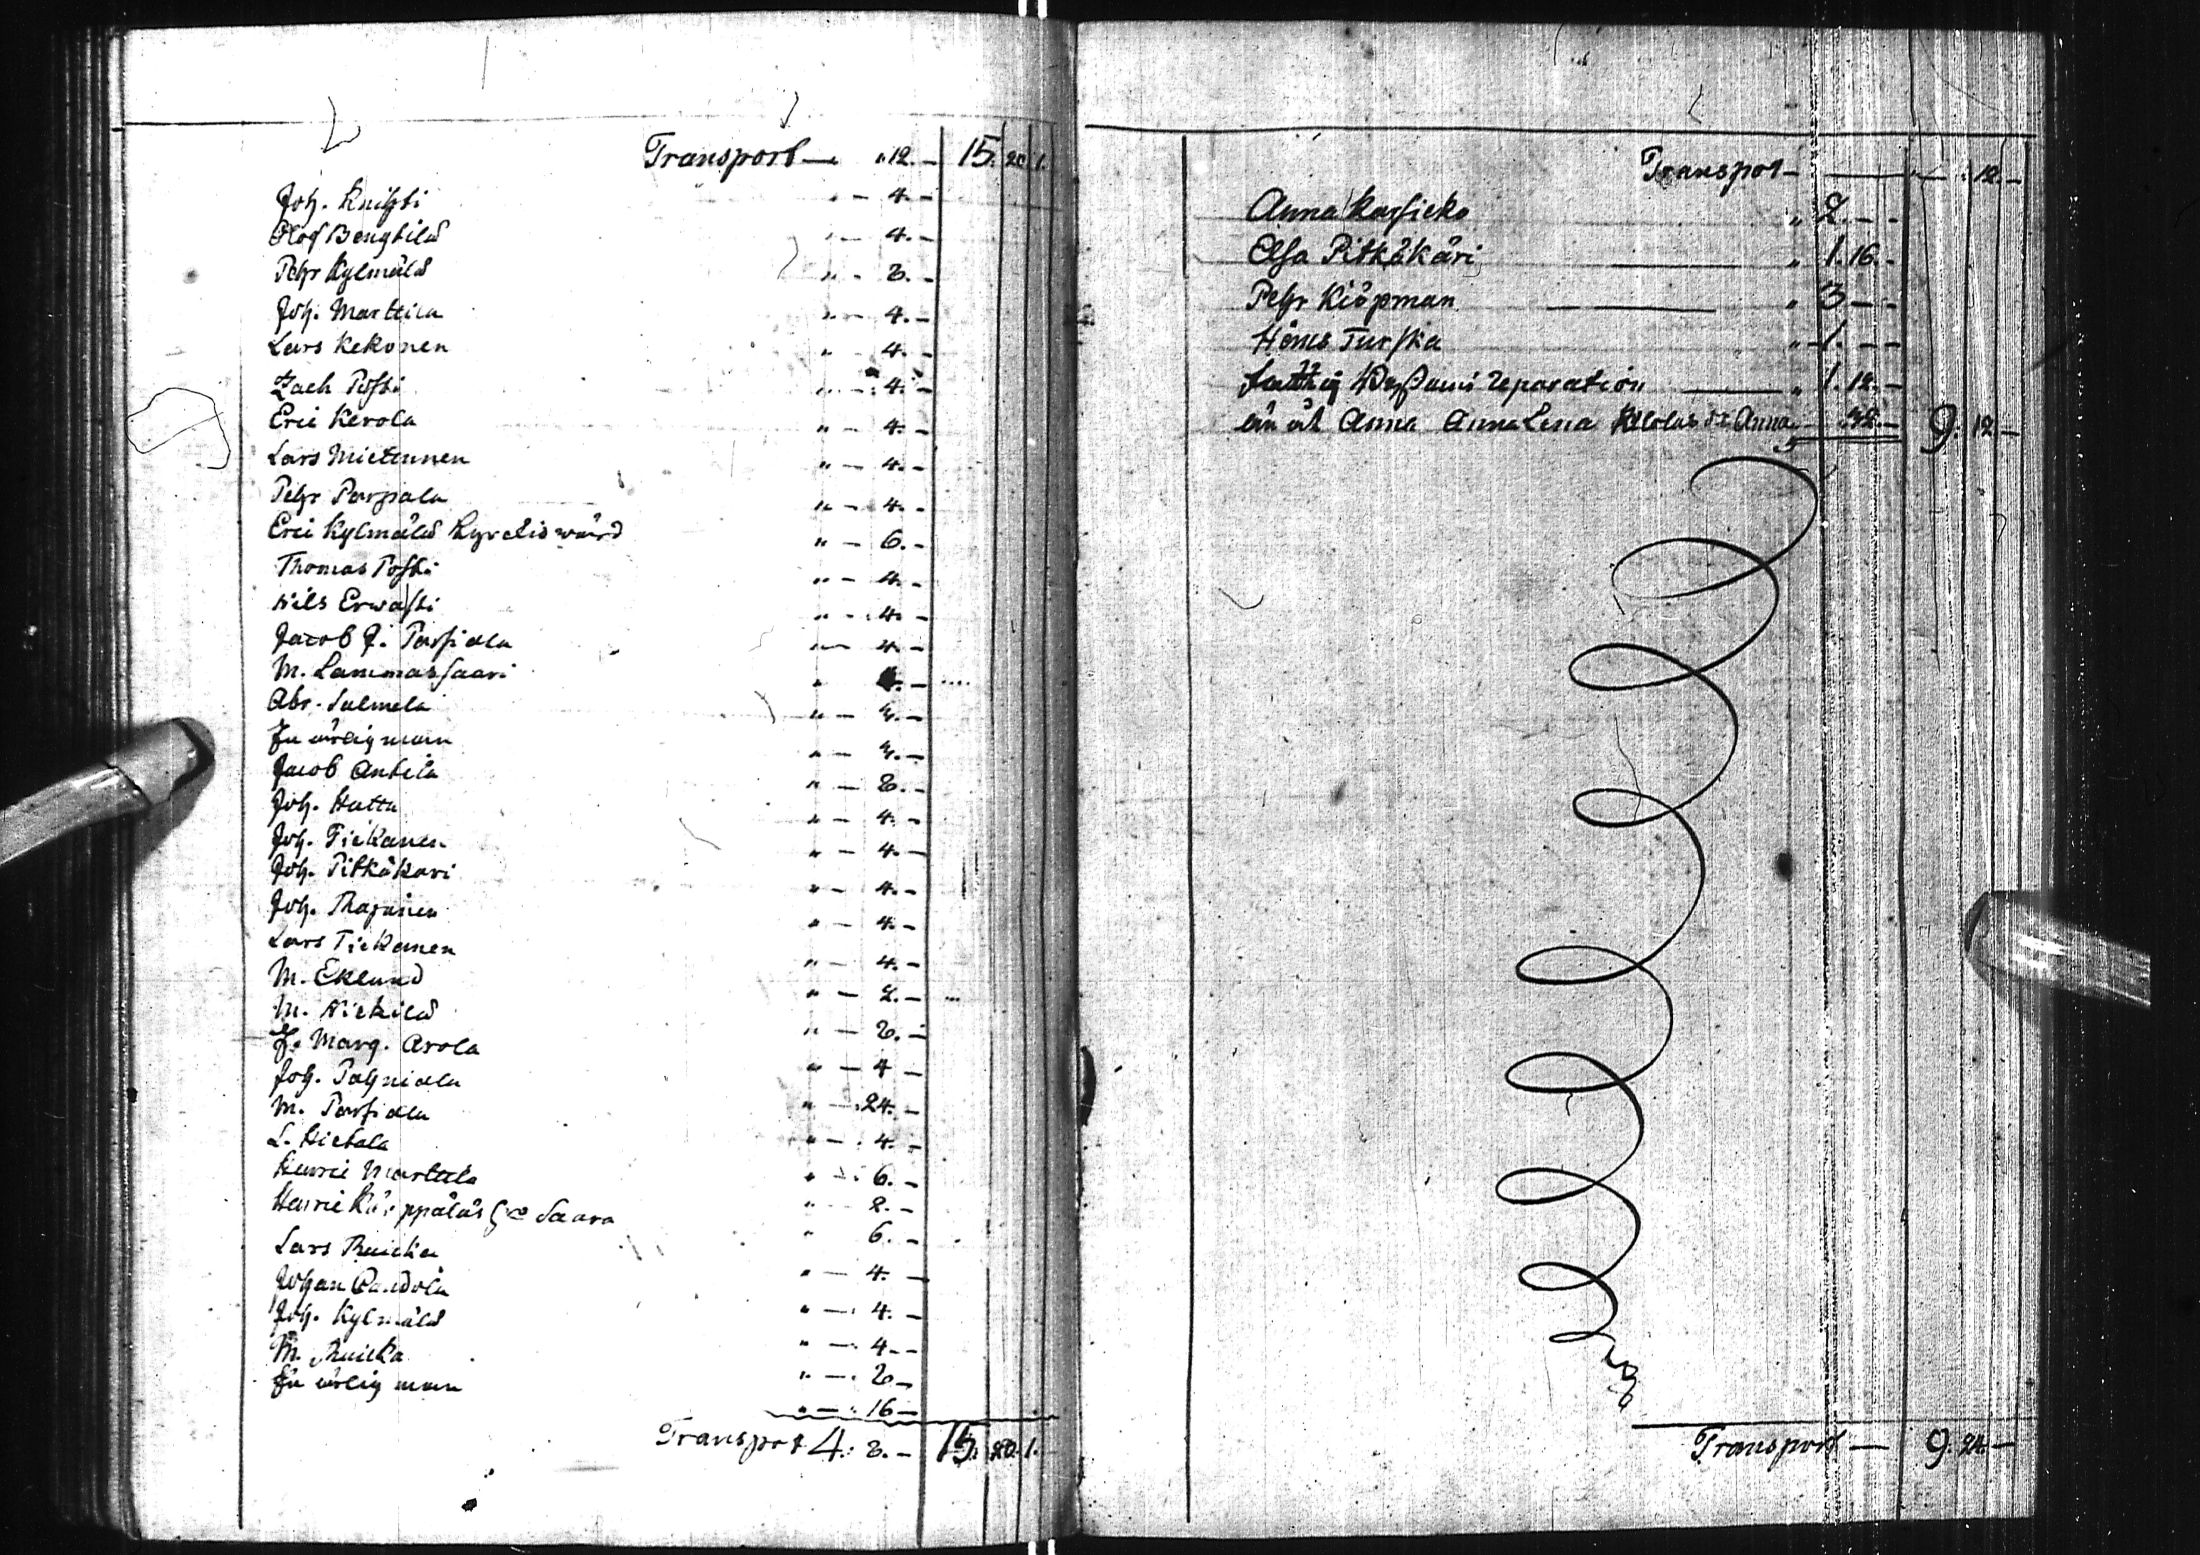 Transport — „ 12. — 15. 20. 1.
Joh. Knihti „ — 4. —
Olof Bengtilä „ — 4. —
Pehr Kylmälä „ — 2. —
Joh. Marttila „ — 4. —
Lars Kekonen „ — 4. —
Zach Posti „ — 4. —
Eric Kerola „ — 4. —
Lars Mietunnen „ — 4. —
Pehr Parpala „ — 4. —
Eric Kylmälä wärd „ — 6. —
Thomas Posti „ — 4. —
Nils Erwasti „ — 4. —
Jacob J. Parsiala „ — 4. —
M. Lammassaari „ 4. —
Abr. Sulmela „ — 4. —
En ärlig man „ — 4. —
Jacob Antila „ — 2. —
Joh. Hutta „ — 4. —
Joh. Tiekanen „ — 4. —
Joh. Pitkäkari „ — 4. —
Joh. „ — 4. —
Lars Tiekanen „ — 4. —
M. Eklund „ — 2. —
M. Niekilä „ — 2. —
E. Marg. Arola „ — 4 —
Joh. Pahniala „ — 24. —
M. Parsiala „ — 4. —
L. Hietala „ — 6. —
Henric Marttila „ 2. —
Henric Käppäläs Saara „ 6. —
Lars „ — 4. —
Johan „ — 4. —
Joh. Kylmälä „ — 4. —
M. „ — 2 —
En ärlig man „ — 16 —
Transport 4. 2. — 15. 20. 1.
Transport — „ — 12. —
Anna Karsicko „ 2. — -
Elsa Pitkäkäri „ 1. 16. -
Pehr Kiöpman „ 3 — -
Höns Turska „ 1. — -
reparation „ 1. 12. —
än åt Anna Anna Lena Anna „ — 32. — 9. 12. —
Transport — 9. 24. —